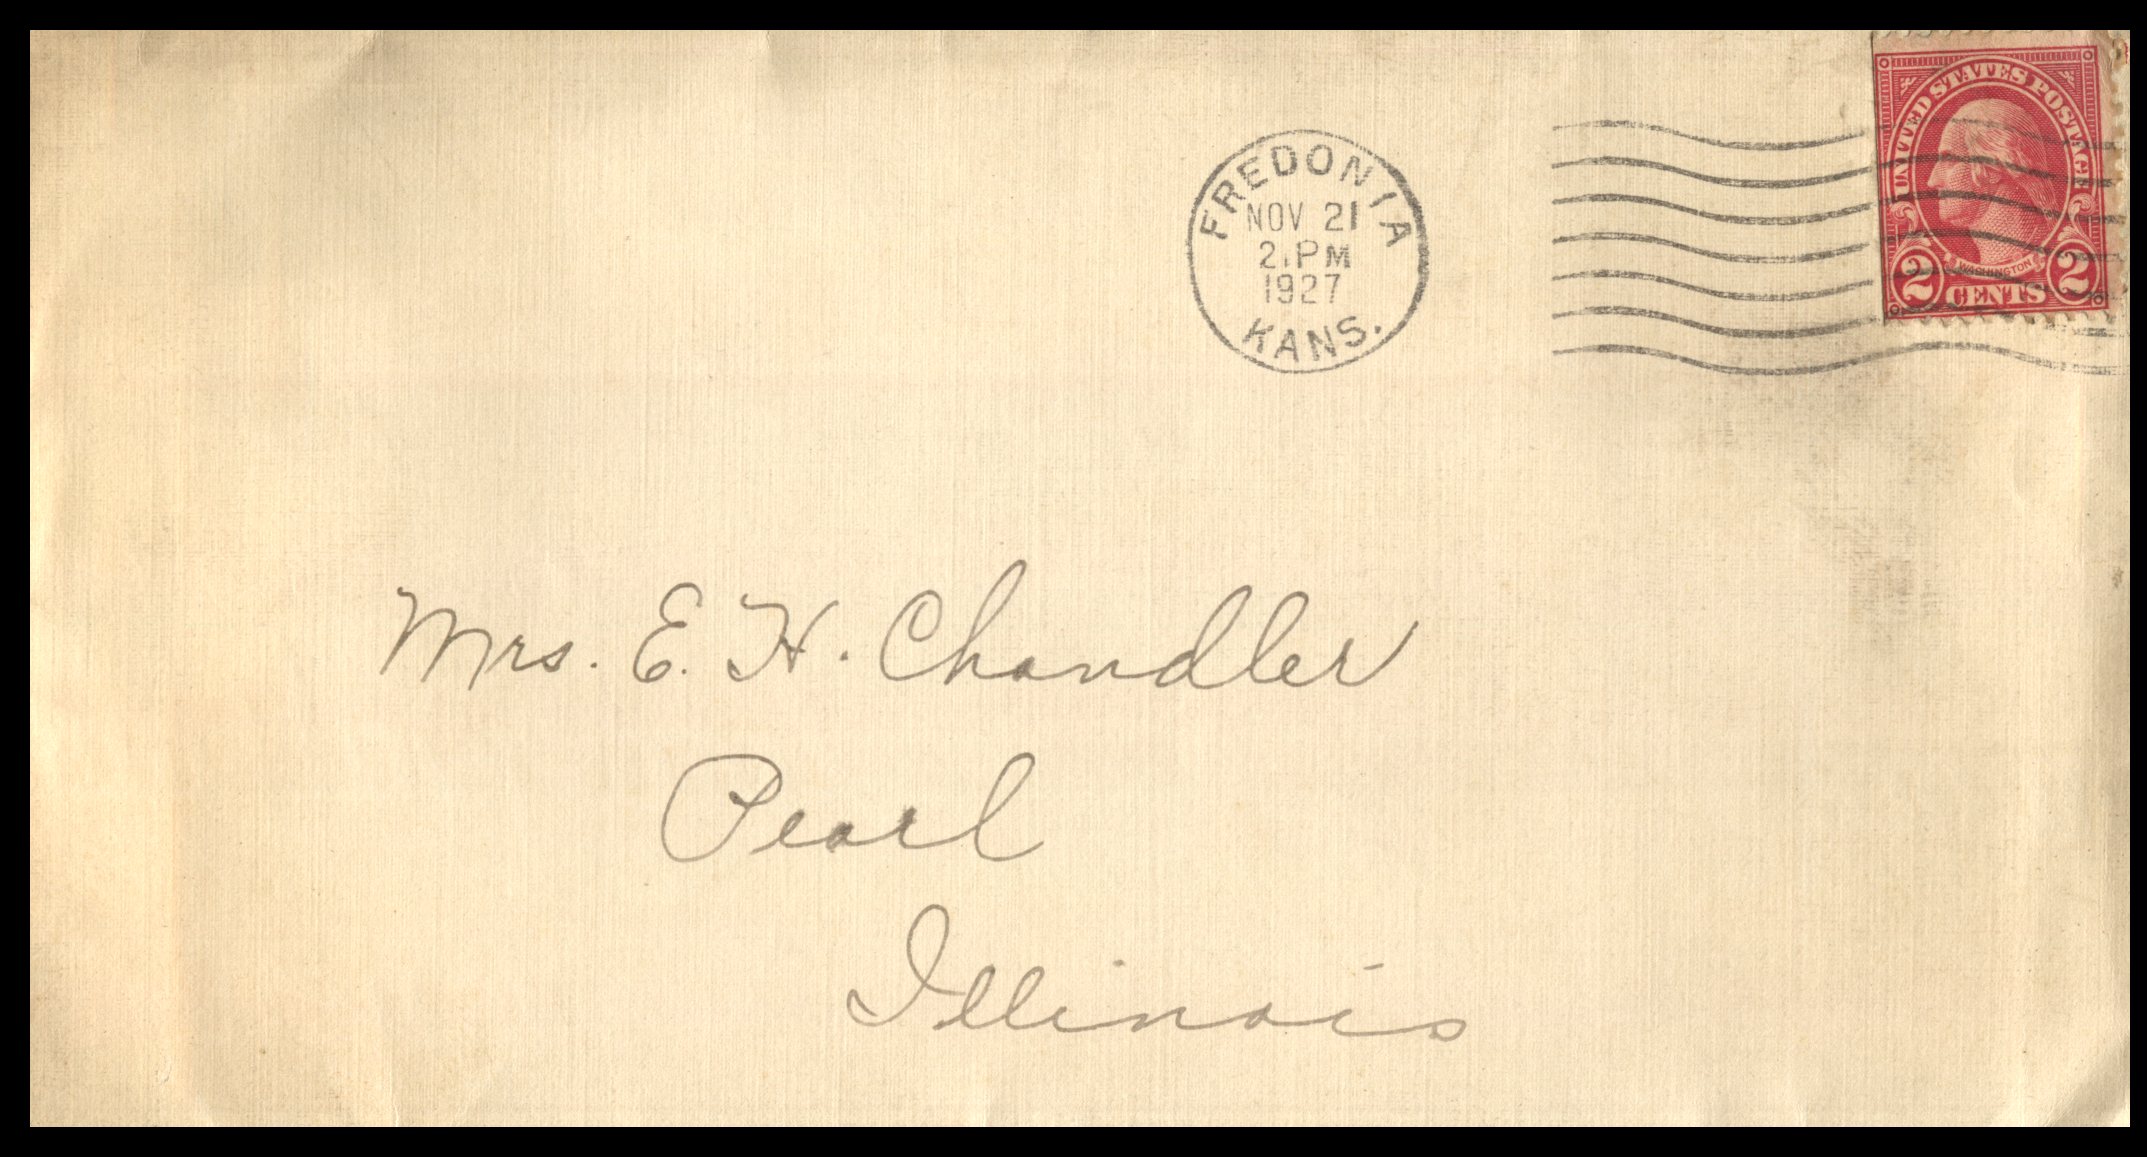 FREDONIA
NOV 21
2 PM
1927
KANS.
UNITED STATES POSTAGE
WASHINGTON
2 CENTS 2
Mrs. E. H. Chandler
Pearl
Illinois